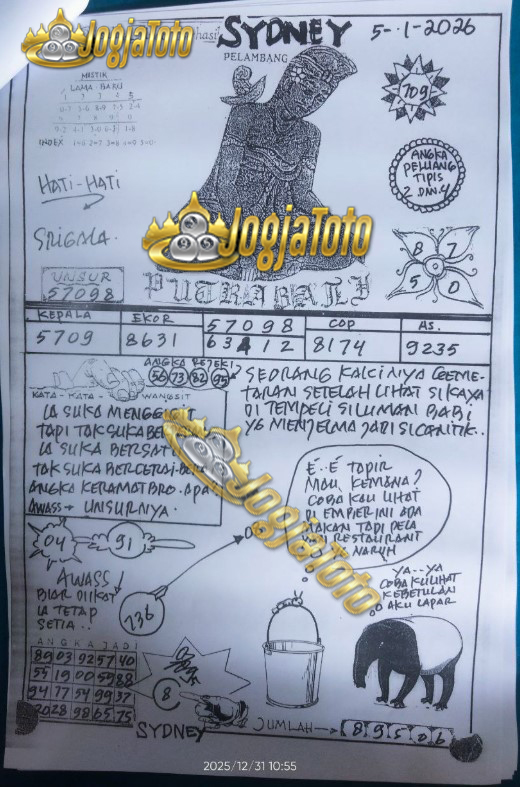 JogjaToto
hasil SYDNEY 5-1-2026
PELAMBANG
MISTIK
LAMA BARU
1 2 3 4 5
INDEX
709
HATI-HATI
SRIGALA.
ANGKA
PELUANG
TIPIS
2 DAN 4
JogjaToto
8 7
5 0
UNSUR
57098
PUTRA BALI
KEPALA EKOR 57098 COP AS.
5709 8631 63412 8174 9235
ANGKA REJEKI
56 73 82 95
KATA-KATA WANGSIT
IA SUKA MENGGIGIT
TAPI TAK SUKA
IA SUKA
TAK SUKA
ANGKA KERAMAT BRO. APA
AWASS → UNSURNYA.
SEORANG KAKINYA GEME-
TARAN SETELAH LIHAT SI KAYA
DI TEMPELI SILUMAN BABI
YG MENJELMA JADI SI CANTIK..
JogjaToto
E..E TAPIR
MAU KEMANA?
COBA KAU LIHAT
DI EMBER INI ADA
MAKAN TADI
RESTAURANT
04
91
AWASS
BIAR DIIKAT
IA TETAP
SETIA..
736
YA..YA
COBA KULIHAT
KEBETULAN
AKU LAPAR
ANGKA JADI
89 03 92 57 40
55 19 00 59 88
94 77 54 99 37
2028 98 65 75
8
SYDNEY
JUMLAH → 8 9 5 0 6
2025/12/31 10:55